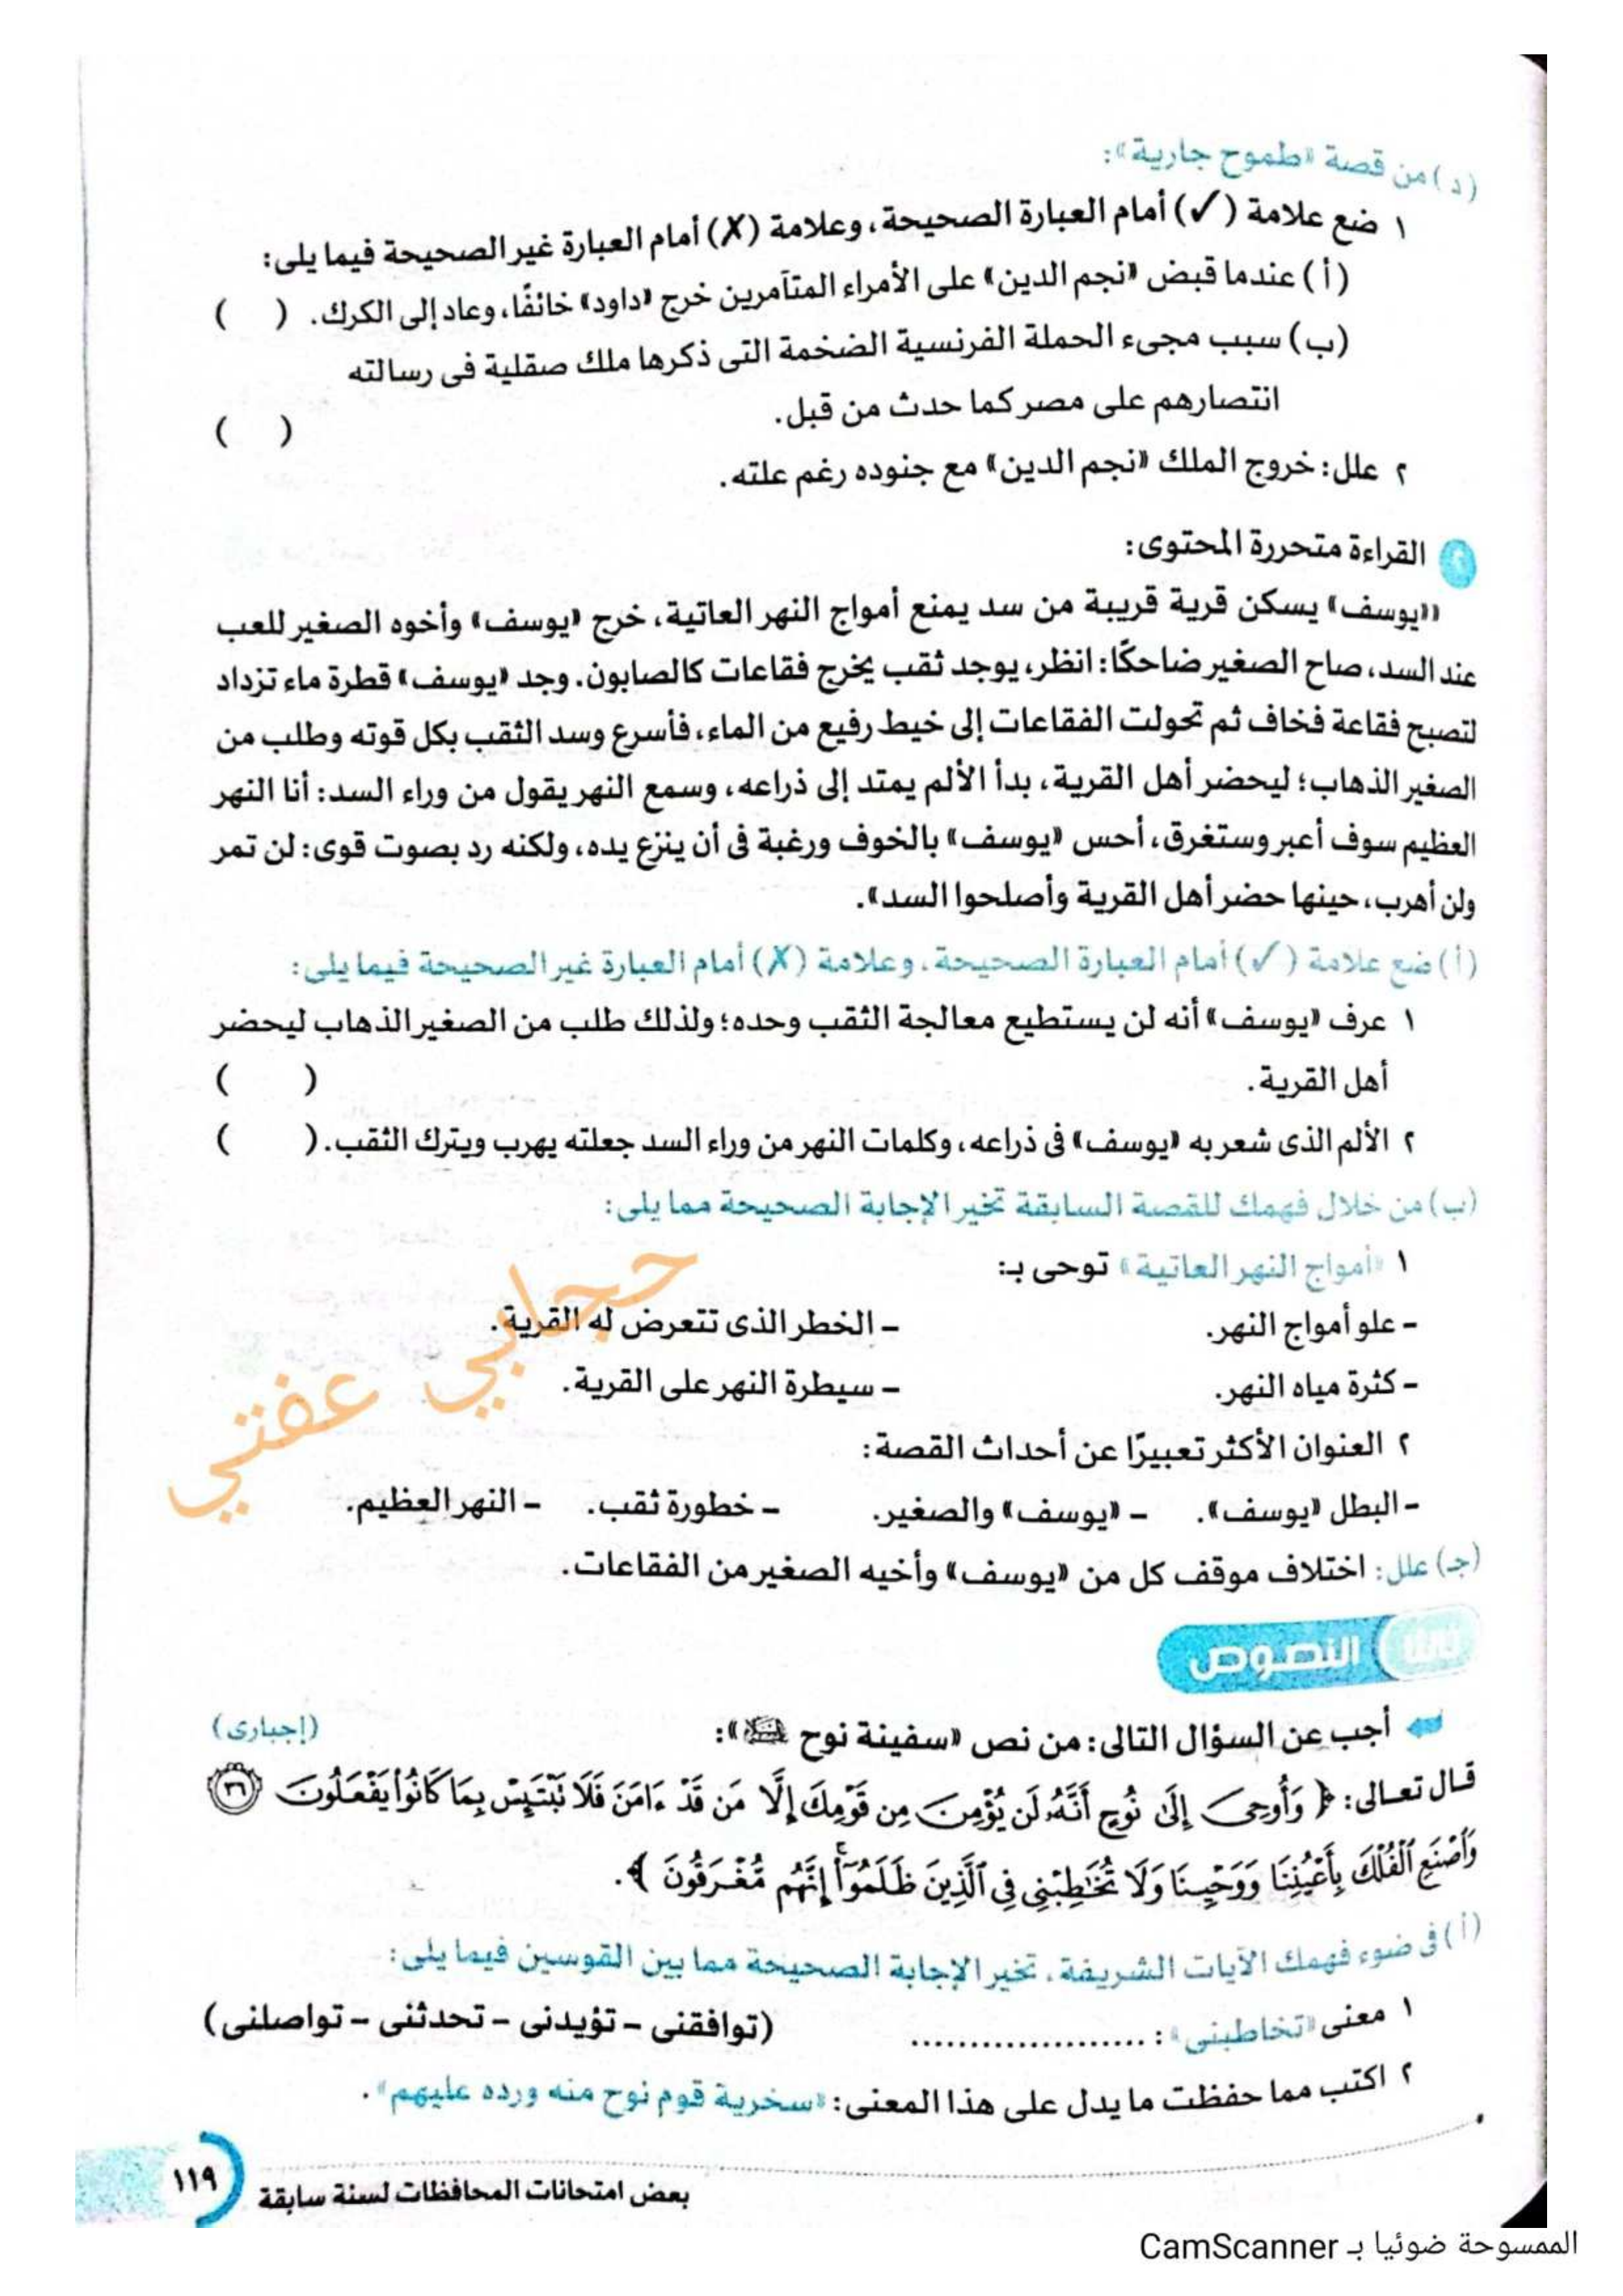 (د) من قصة «طموح جارية»:
١ ضع علامة (✓) أمام العبارة الصحيحة، وعلامة (✗) أمام العبارة غير الصحيحة فيما يلى:
(أ) عندما قبض «نجم الدين» على الأمراء المتآمرين خرج «داود» خائفًا، وعاد إلى الكرك. ( )
(ب) سبب مجىء الحملة الفرنسية الضخمة التى ذكرها ملك صقلية فى رسالته
انتصارهم على مصر كما حدث من قبل. ( )
٢ علل: خروج الملك «نجم الدين» مع جنوده رغم علته.
٢ القراءة متحررة المحتوى:
«يوسف» يسكن قرية قريبة من سد يمنع أمواج النهر العاتية، خرج «يوسف» وأخوه الصغير للعب
عند السد، صاح الصغير ضاحكًا: انظر، يوجد ثقب يخرج فقاعات كالصابون. وجد «يوسف» قطرة ماء تزداد
لتصبح فقاعة فخاف ثم تحولت الفقاعات إلى خيط رفيع من الماء، فأسرع وسد الثقب بكل قوته وطلب من
الصغير الذهاب؛ ليحضر أهل القرية، بدأ الألم يمتد إلى ذراعه، وسمع النهر يقول من وراء السد: أنا النهر
العظيم سوف أعبر وستغرق، أحس «يوسف» بالخوف ورغبة فى أن ينزع يده، ولكنه رد بصوت قوى: لن تمر
ولن أهرب، حينها حضر أهل القرية وأصلحوا السد».
(أ) ضع علامة (✓) أمام العبارة الصحيحة، وعلامة (✗) أمام العبارة غير الصحيحة فيما يلى:
١ عرف «يوسف» أنه لن يستطيع معالجة الثقب وحده؛ ولذلك طلب من الصغير الذهاب ليحضر
أهل القرية. ( )
٢ الألم الذى شعر به «يوسف» فى ذراعه، وكلمات النهر من وراء السد جعلته يهرب ويترك الثقب. ( )
(ب) من خلال فهمك للقصة السابقة تخير الإجابة الصحيحة مما يلى:
١ «أمواج النهر العاتية» توحى بـ:
- علو أمواج النهر. - الخطر الذى تتعرض له القرية.
- كثرة مياه النهر. - سيطرة النهر على القرية.
٢ العنوان الأكثر تعبيرًا عن أحداث القصة:
- البطل «يوسف». - «يوسف» والصغير. - خطورة ثقب. - النهر العظيم.
حجابي عفتي
(جـ) علل: اختلاف موقف كل من «يوسف» وأخيه الصغير من الفقاعات.
ثانيًا النصوص
أجب عن السؤال التالى: من نص «سفينة نوح عليه السلام»: (إجبارى)
قال تعالى: ﴿ وَأُوحِىَ إِلَىٰ نُوحٍ أَنَّهُۥ لَن يُؤْمِنَ مِن قَوْمِكَ إِلَّا مَن قَدْ ءَامَنَ فَلَا تَبْتَئِسْ بِمَا كَانُوا۟ يَفْعَلُونَ ٣٦
وَٱصْنَعِ ٱلْفُلْكَ بِأَعْيُنِنَا وَوَحْيِنَا وَلَا تُخَٰطِبْنِى فِى ٱلَّذِينَ ظَلَمُوٓا۟ إِنَّهُم مُّغْرَقُونَ ﴾.
(أ) فى ضوء فهمك الآيات الشريفة، تخير الإجابة الصحيحة مما بين القوسين فيما يلى:
١ معنى «تخاطبنى»: ..................... (توافقنى - تؤيدنى - تحدثنى - تواصلنى)
٢ اكتب مما حفظت ما يدل على هذا المعنى: «سخرية قوم نوح منه ورده عليهم».
١١٩ بعض امتحانات المحافظات لسنة سابقة
الممسوحة ضوئيا بـ CamScanner